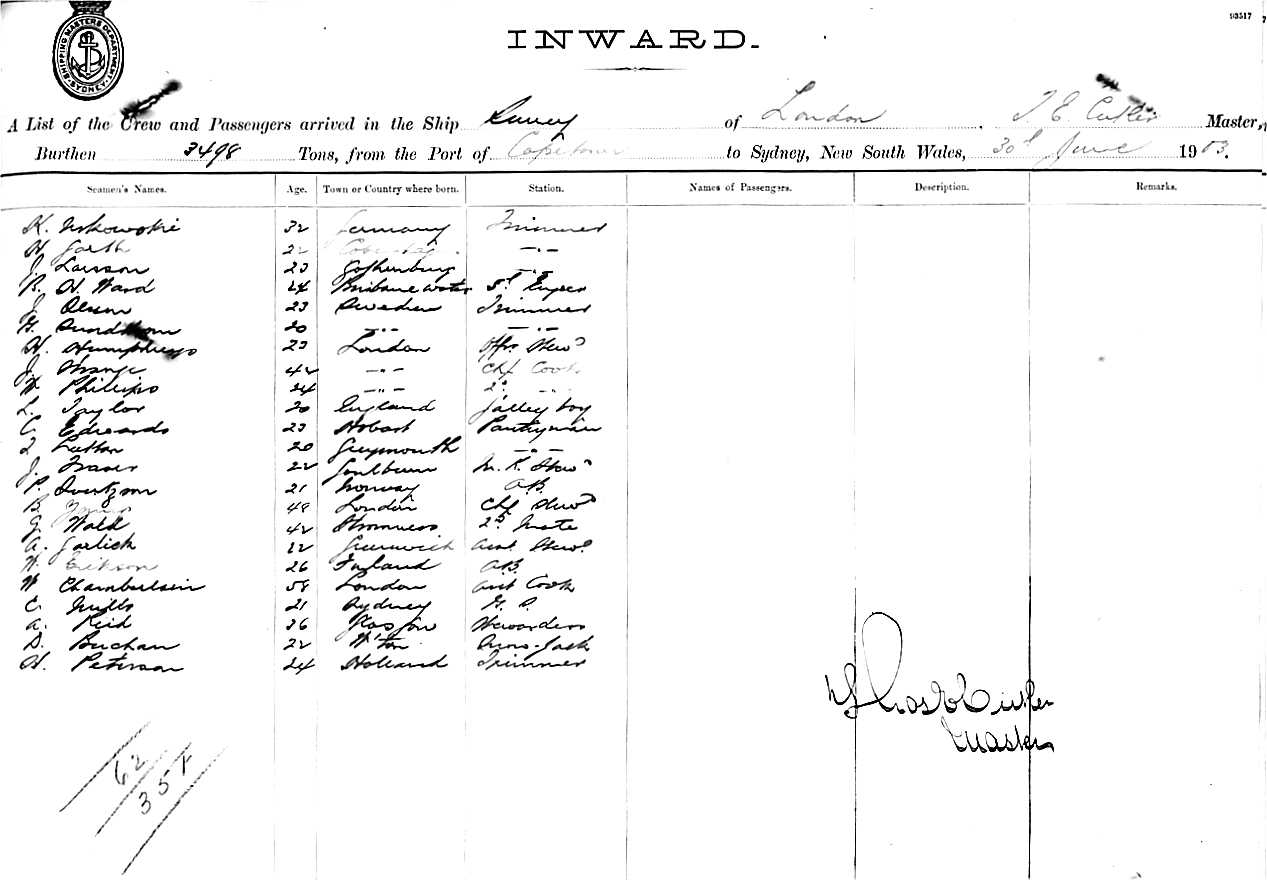 93517
SHIPPING MASTERS DEPARTMENT SYDNEY
INWARD.
A List of the Crew and Passengers arrived in the Ship Surrey of London, T. E. Cutler Master,
Burthen 3498 Tons, from the Port of Capetown to Sydney, New South Wales, 30th June 1903.
Seamen's Names. Age. Town or Country where born. Station. Names of Passengers. Description. Remarks.
K. 32 Germany Trimmer
H. Garth 22 —"—
J. Larsson 23 Gothenburg —"—
R. H. Ward 24 Brisbane water 5th Engeer
J. Olsson 23 Sweden Trimmer
G. Sundstrom 20 —"— —"—
H. Humphreys 23 London Offrs Stewd
J. Strange 42 —"— Chf Cook
W Phillips 24 —"— 2d —"—
L. Taylor 20 England Galley boy
C. Edwards 23 Hobart Pantryman
Lutton 20 Greymouth —"—
J. Fraser 22 Goulburn M. R. Stewd
P. 21 Norway A.B.
B. 48 London Chf Stewd
Wald 42 Stromness 2d Mate
A. Garlick 22 Greenwich asst. Stewd
W. Erikson 26 Finland A.B.
W Chamberlain 58 London asst Cook
C. Mills 21 Sydney G. S.
A. Reid 36 Glasgow Stewardess
D. Buchan 22 W'ton
H. Peterson 24 Holland Trimmer
Thos E Cutler
Master
62
357